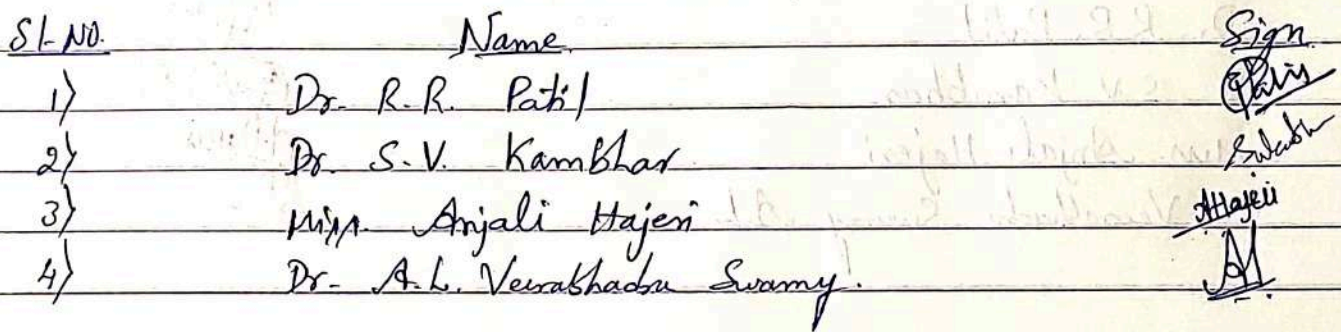 Sl-No. Name Sign
1) Dr. R.R. Patil Patil
2) Dr. S.V. Kambhar
3) Miss. Anjali Hajeri AHajeri
4) Dr. A.L. Veerabhadra Swamy.